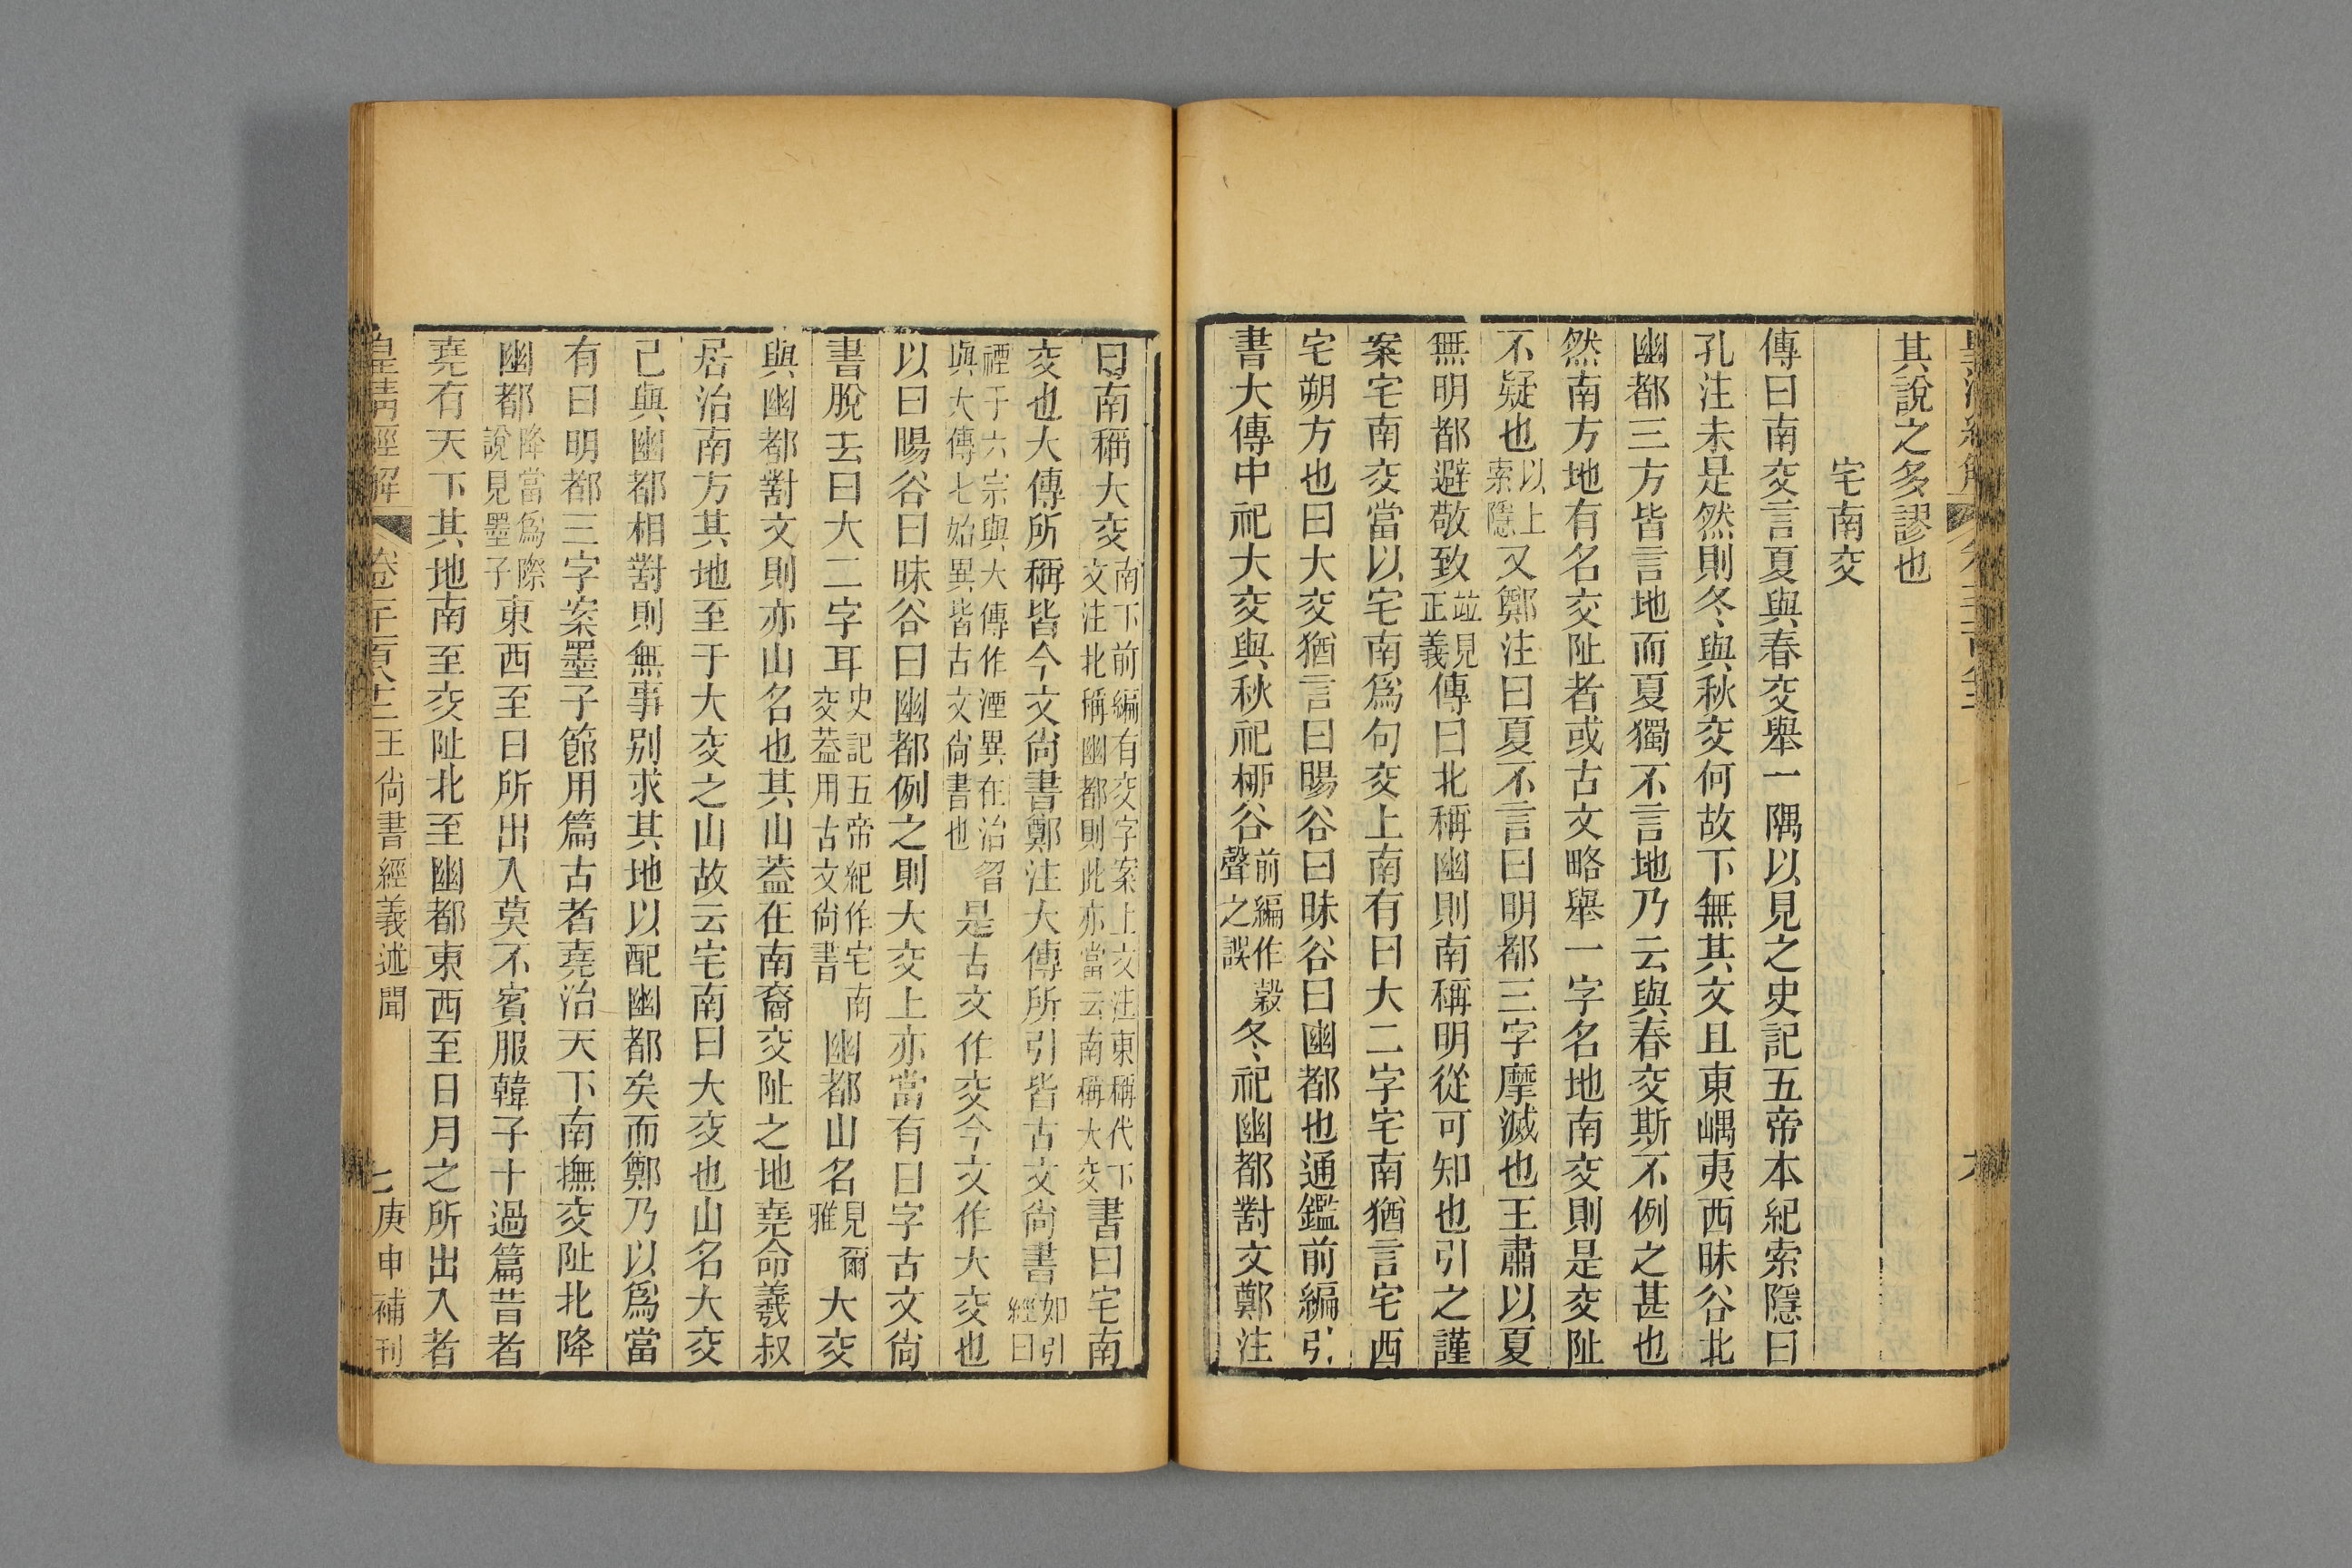 其說之多謬也
宅南交
傳曰南交言夏與春交舉一隅以見之史記五帝本紀索隱曰
孔注未是然則冬與秋交何故下無其文且東嵎夷西昧谷北
幽都三方皆言地而夏獨不言地乃云與春交斯不例之甚也
然南方地有名交阯者或古文略舉一字名地南交則是交阯
不疑也以上索隱又鄭注曰夏不言曰明都三字摩滅也王肅以夏
無明都避敬致竝見正義傳曰北稱幽則南稱明從可知也引之謹
案宅南交當以宅南爲句交上南有曰大二字宅南猶言宅西
宅朔方也曰大交猶言曰暘谷曰昧谷曰幽都也通鑑前編引
書大傳中祀大交與秋祀桺谷前編作穀聲之誤冬祀幽都對文鄭注
曰南稱大交南下前編有交字案上文注東稱代下文注北稱幽都則此亦當云南稱大交書曰宅南
交也大傳所稱皆今文尙書鄭注大傳所引皆古文尙書如引經曰
禋于六宗與大傳作湮異在治曶與大傳七始異皆古文尙書也是古文作交今文作大交也
以曰暘谷曰昧谷曰幽都例之則大交上亦當有曰字古文尙
書脫去曰大二字耳史記五帝紀作宅南交葢用古文尙書幽都山名見爾雅大交
與幽都對文則亦山名也其山葢在南裔交阯之地堯命羲叔
居治南方其地至于大交之山故云宅南曰大交也山名大交
己與幽都相對則無事別求其地以配幽都矣而鄭乃以爲當
有曰明都三字案墨子節用篇古者堯治天下南撫交阯北降
幽都降當爲際說見墨子東西至日所出入莫不賓服韓子十過篇昔者
堯有天下其地南至交阯北至幽都東西至日月之所出入者
皇淸經解
卷千一百八十二王尙書經義述聞
七
庚申補刊